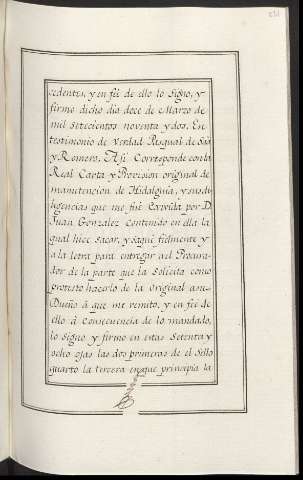 cedentes, y en feè de ello lo Signo, y
firmo dicho dia doce de Marzo de
mil Setecientos noventa y dos. En
testimonio de Verdad Pasqual de
y Romero. Asi Corresponde con la
Real Carta y Provision original de
manutencion de Hidalguia, y sus di
ligencias que me fuè Exivida por D.
Juan Gonzalez contenido en ella la
qual hice sacar, y saquè fielmente y
a la letra para entregar a el Procura
dor de la parte que la Solicita como
protesto hacerlo de la Original a su
Dueño à que me remito, y en feè de
ello à Consecuencia de lo mandado,
lo Signo y firmo en estas Setenta y
ocho ojas las dos primeras de el Sello
quarto la tercera en que principia la